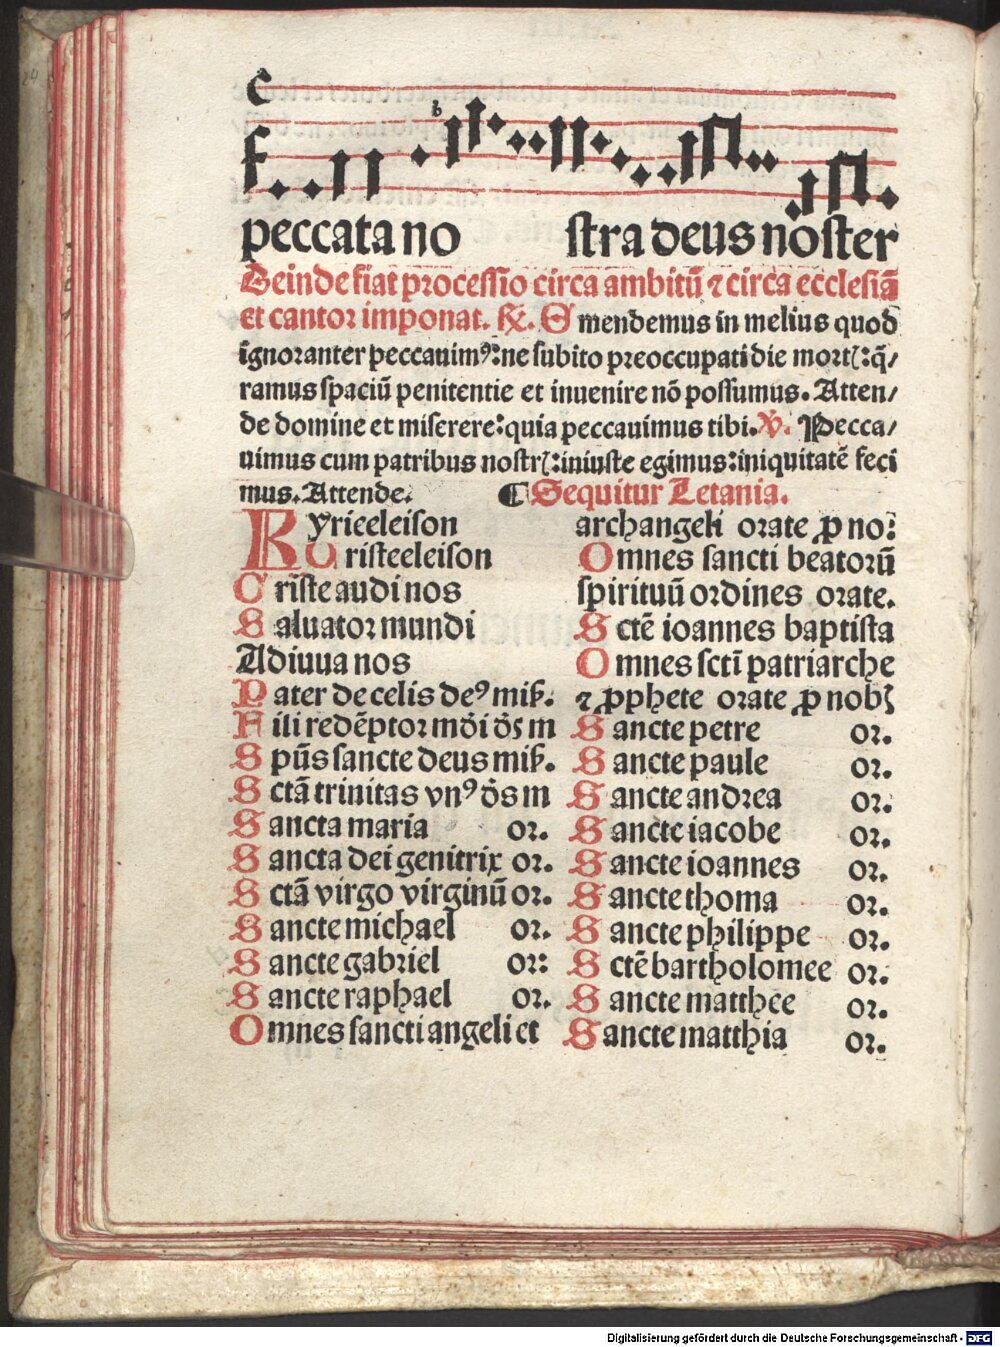 peccata no stra deus noster
Deinde fiat processio circa ambitū ⁊ circa ecclesiā
et cantor imponat. ℟. Emendemus in melius quod
ignoranter peccauimꝰ: ne subito preoccupati die mortꝭ: q̄/
ramus spaciū penitentie et inuenire nō possumus. Atten/
de domine et miserere: quia peccauimus tibi. ℣. Pecca/
uimus cum patribus nostrꝭ: iniuste egimus: iniquitatē feci
mus. Attende. ¶ Sequitur Letania.
Kyrieeleison
Christeeleison
Criste audi nos
Saluator mundi
Adiuua nos
Pater de celis deꝰ miẞ.
Fili redēptor mōi ōs m
Spūs sancte deus miẞ.
Sctā trinitas vnꝰ ōs m
Sancta maria or.
Sancta dei genitrix or.
Sctā virgo virginū or.
Sancte michael or.
Sancte gabriel or:
Sancte raphael or.
Omnes sancti angeli et
archangeli orate ꝓ no:
Omnes sancti beatorū
spirituū ordines orate.
Sctē ioannes baptista
Omnes sctī patriarche
⁊ ꝓphete orate ꝓ nobꝫ
Sancte petre or.
Sancte paule or.
Sancte andrea or.
Sancte iacobe or.
Sancte ioannes or.
Sancte thoma or.
Sancte philippe or.
Sctē bartholomee or.
Sancte matthee or.
Sancte matthia or.
Digitalisierung gefördert durch die Deutsche Forschungsgemeinschaft - DFG